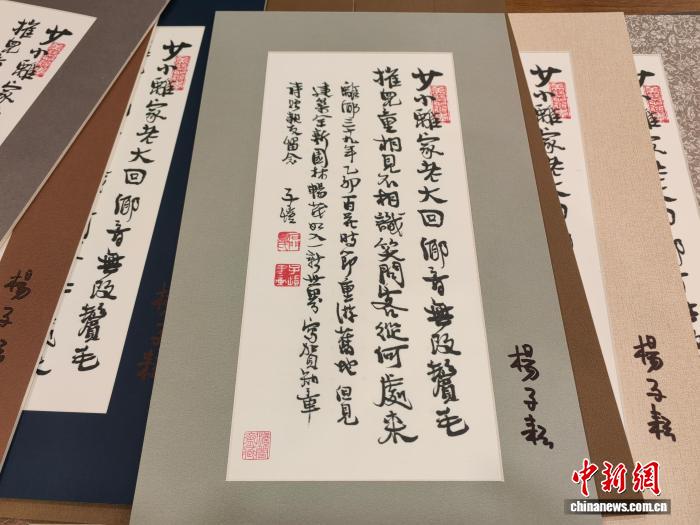 少小離家
摧兒童相見
楊子耘
少小離家老大回鄉音無改鬢毛
楊子耘
少小離家老大回鄉音無改鬢毛
摧兒童相見不相識笑問客從何處来
離鄉三十九年乙卯百花時節重游舊地但見
建築全新園林暢茂如入一新世界寫賀知章
詩贈親友留念
子愷
楊子耘
少小離家老大
楊子耘
中新网
chinanews.com.cn